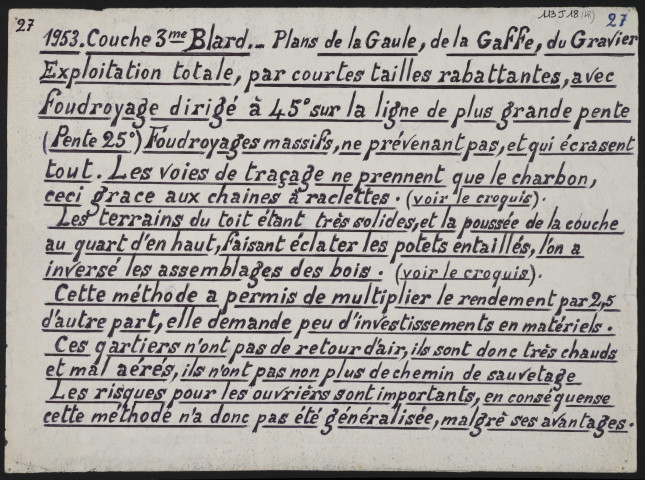 27
113 J 18 (28)
27
1953. Couche 3me Blard._ Plans de la Gaule, de la Gaffe, du Gravier
Exploitation totale, par courtes tailles rabattantes, avec
foudroyage dirigé à 45° sur la ligne de plus grande pente
(Pente 25°) Foudroyages massifs, ne prévenant pas, et qui écrasent
tout. Les voies de traçage ne prennent que le charbon,
ceci grace aux chaines à raclettes. (voir le croquis).
Les terrains du toit étant très solides, et la poussée de la couche
au quart d'en haut, faisant éclater les potets entaillés, l'on a
inversé les assemblages des bois. (voir le croquis).
Cette méthode a permis de multiplier le rendement par 2,5
d'autre part, elle demande peu d'investissements en matériels.
Ces qartiers n'ont pas de retour d'air, ils sont donc très chauds
et mal aérés, ils n'ont pas non plus de chemin de sauvetage
Les risques pour les ouvrièrs sont importants, en conséquense
cette méthode n'a donc pas été généralisée, malgrè ses avantages.